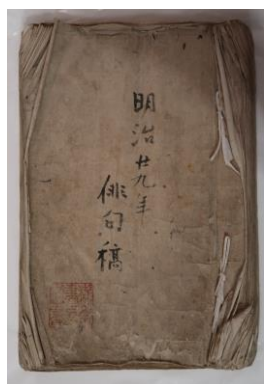 明治廿九年
俳句稿